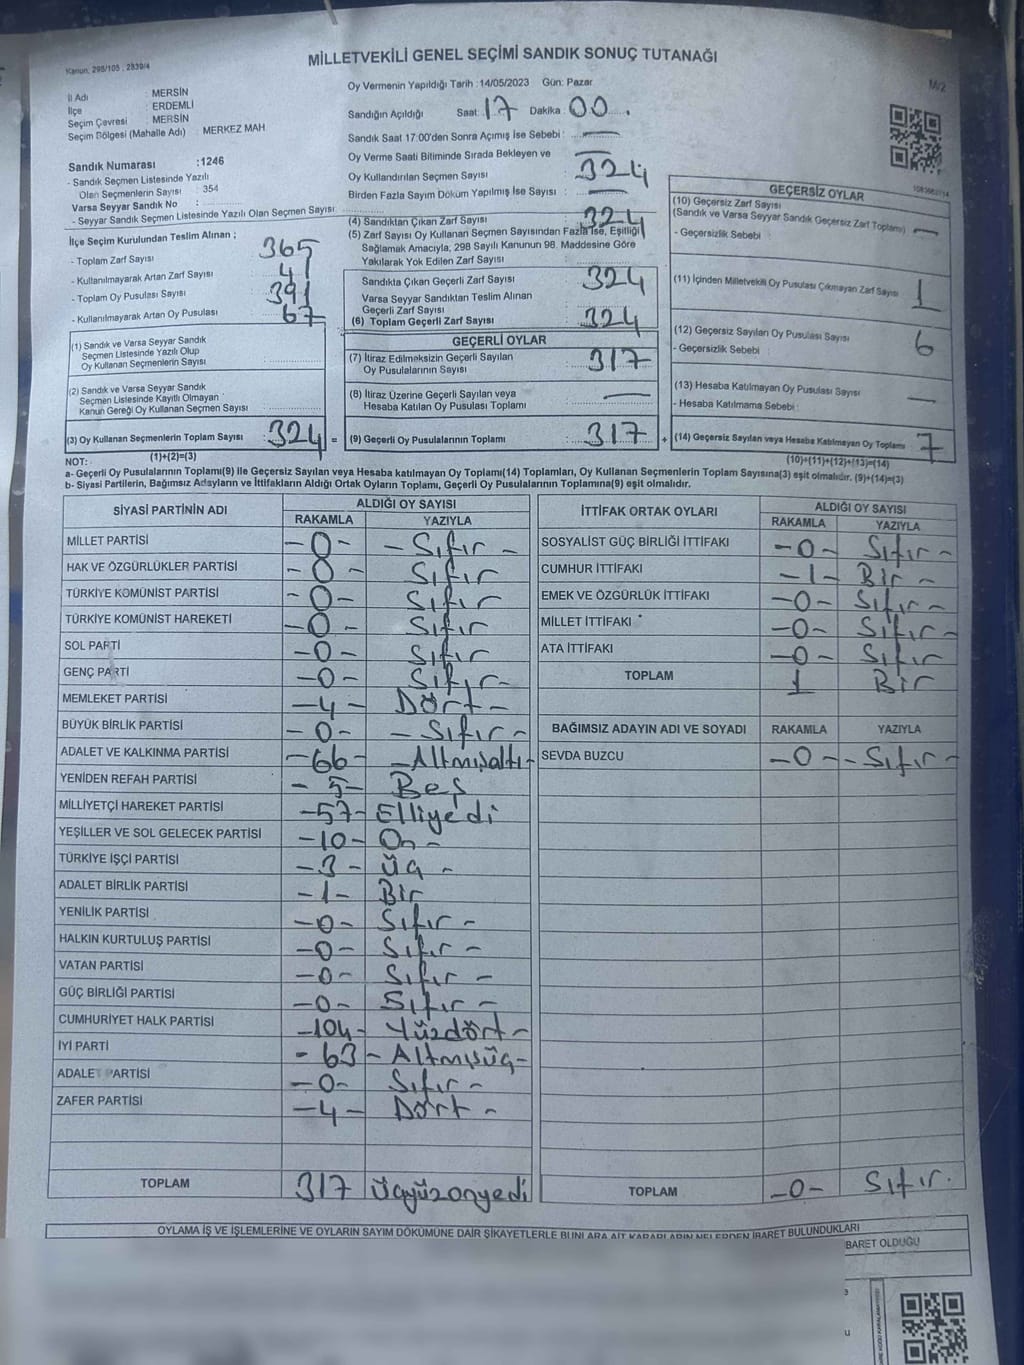 Kanun: 298/105 , 2839/4
MİLLETVEKİLİ GENEL SEÇİMİ SANDIK SONUÇ TUTANAĞI
M/2
İl Adı : MERSİN
İlçe : ERDEMLİ
Seçim Çevresi : MERSİN
Seçim Bölgesi (Mahalle Adı) : MERKEZ MAH
Sandık Numarası :1246
- Sandık Seçmen Listesinde Yazılı
Olan Seçmenlerin Sayısı : 354
Varsa Seyyar Sandık No :
- Seyyar Sandık Seçmen Listesinde Yazılı Olan Seçmen Sayısı:
İlçe Seçim Kurulundan Teslim Alınan ;
- Toplam Zarf Sayısı 365
- Kullanılmayarak Artan Zarf Sayısı 41
- Toplam Oy Pusulası Sayısı 391
- Kullanılmayarak Artan Oy Pusulası 67
(1) Sandık ve Varsa Seyyar Sandık
Seçmen Listesinde Yazılı Olup
Oy Kullanan Seçmenlerin Sayısı
(2) Sandık ve Varsa Seyyar Sandık
Seçmen Listesinde Kayıtlı Olmayan
Kanun Gereği Oy Kullanan Seçmen Sayısı
(3) Oy Kullanan Seçmenlerin Toplam Sayısı :324 =
(1)+(2)=(3)
Oy Vermenin Yapıldığı Tarih :14/05/2023 Gün: Pazar
Sandığın Açıldığı Saat: 17 Dakika : 00
Sandık Saat 17:00'den Sonra Açımış İse Sebebi : —
Oy Verme Saati Bitiminde Sırada Bekleyen ve
Oy Kullandırılan Seçmen Sayısı : 324
Birden Fazla Sayım Döküm Yapılmış İse Sayısı : —
(4) Sandıktan Çıkan Zarf Sayısı : 324
(5) Zarf Sayısı Oy Kullanan Seçmen Sayısından Fazla İse, Eşitliği
Sağlamak Amacıyla, 298 Sayılı Kanunun 98. Maddesine Göre
Yakılarak Yok Edilen Zarf Sayısı :
Sandıkta Çıkan Geçerli Zarf Sayısı : 324
Varsa Seyyar Sandıktan Teslim Alınan
Geçerli Zarf Sayısı :
(6) Toplam Geçerli Zarf Sayısı : 324
GEÇERLİ OYLAR
(7) İtiraz Edilmeksizin Geçerli Sayılan
Oy Pusulalarının Sayısı : 317
(8) İtiraz Üzerine Geçerli Sayılan veya
Hesaba Katılan Oy Pusulası Toplamı : —
(9) Geçerli Oy Pusulalarının Toplamı : 317 +
GEÇERSİZ OYLAR
(10) Geçersiz Zarf Sayısı
(Sandık ve Varsa Seyyar Sandık Geçersiz Zarf Toplamı) —
- Geçersizlik Sebebi :
(11) İçinden Milletvekili Oy Pusulası Çıkmayan Zarf Sayısı 1
(12) Geçersiz Sayılan Oy Pusulası Sayısı 6
- Geçersizlik Sebebi :
(13) Hesaba Katılmayan Oy Pusulası Sayısı —
- Hesaba Katılmama Sebebi :
(14) Geçersiz Sayılan veya Hesaba Katılmayan Oy Toplamı 7
(10)+(11)+(12)+(13)=(14)
NOT:
a- Geçerli Oy Pusulalarının Toplamı(9) İle Geçersiz Sayılan veya Hesaba katılmayan Oy Toplamı(14) Toplamları, Oy Kullanan Seçmenlerin Toplam Sayısına(3) eşit olmalıdır. (9)+(14)=(3)
b- Siyasi Partilerin, Bağımsız Adayların ve İttifakların Aldığı Ortak Oyların Toplamı, Geçerli Oy Pusulalarının Toplamına(9) eşit olmalıdır.
SİYASİ PARTİNİN ADI ALDIĞI OY SAYISI
RAKAMLA YAZIYLA
MİLLET PARTİSİ -0- -Sıfır-
HAK VE ÖZGÜRLÜKLER PARTİSİ -0- Sıfır
TÜRKİYE KOMÜNİST PARTİSİ -0- Sıfır
TÜRKİYE KOMÜNİST HAREKETİ -0- Sıfır
SOL PARTİ -0- Sıfır
GENÇ PARTİ -0- Sıfır-
MEMLEKET PARTİSİ -4- Dört-
BÜYÜK BİRLİK PARTİSİ -0- -Sıfır-
ADALET VE KALKINMA PARTİSİ -66- -Altmışaltı-
YENİDEN REFAH PARTİSİ -5- Beş
MİLLİYETÇİ HAREKET PARTİSİ -57- Elliyedi
YEŞİLLER VE SOL GELECEK PARTİSİ -10- On-
TÜRKİYE İŞÇİ PARTİSİ -3- Üç-
ADALET BİRLİK PARTİSİ -1- Bir
YENİLİK PARTİSİ -0- Sıfır-
HALKIN KURTULUŞ PARTİSİ -0- Sıfır-
VATAN PARTİSİ -0- Sıfır-
GÜÇ BİRLİĞİ PARTİSİ -0- Sıfır-
CUMHURİYET HALK PARTİSİ -104- Yüzdört-
İYİ PARTİ -63- Altmışüç-
ADALET PARTİSİ -0- Sıfır-
ZAFER PARTİSİ -4- Dört-
TOPLAM 317 Üçyüzonyedi
İTTİFAK ORTAK OYLARI ALDIĞI OY SAYISI
RAKAMLA YAZIYLA
SOSYALİST GÜÇ BİRLİĞİ İTTİFAKI -0- Sıfır-
CUMHUR İTTİFAKI -1- Bir-
EMEK VE ÖZGÜRLÜK İTTİFAKI -0- Sıfır-
MİLLET İTTİFAKI -0- Sıfır-
ATA İTTİFAKI -0- Sıfır
TOPLAM 1 Bir
BAĞIMSIZ ADAYIN ADI VE SOYADI RAKAMLA YAZIYLA
SEVDA BUZCU -0- -Sıfır-
TOPLAM -0- Sıfır.
OYLAMA İŞ VE İŞLEMLERİNE VE OYLARIN SAYIM DÖKÜMÜNE DAİR ŞİKAYETLERLE BUNLARA AİT KARARLARIN NELERDEN İBARET BULUNDUKLARI
BARET OLDUĞU